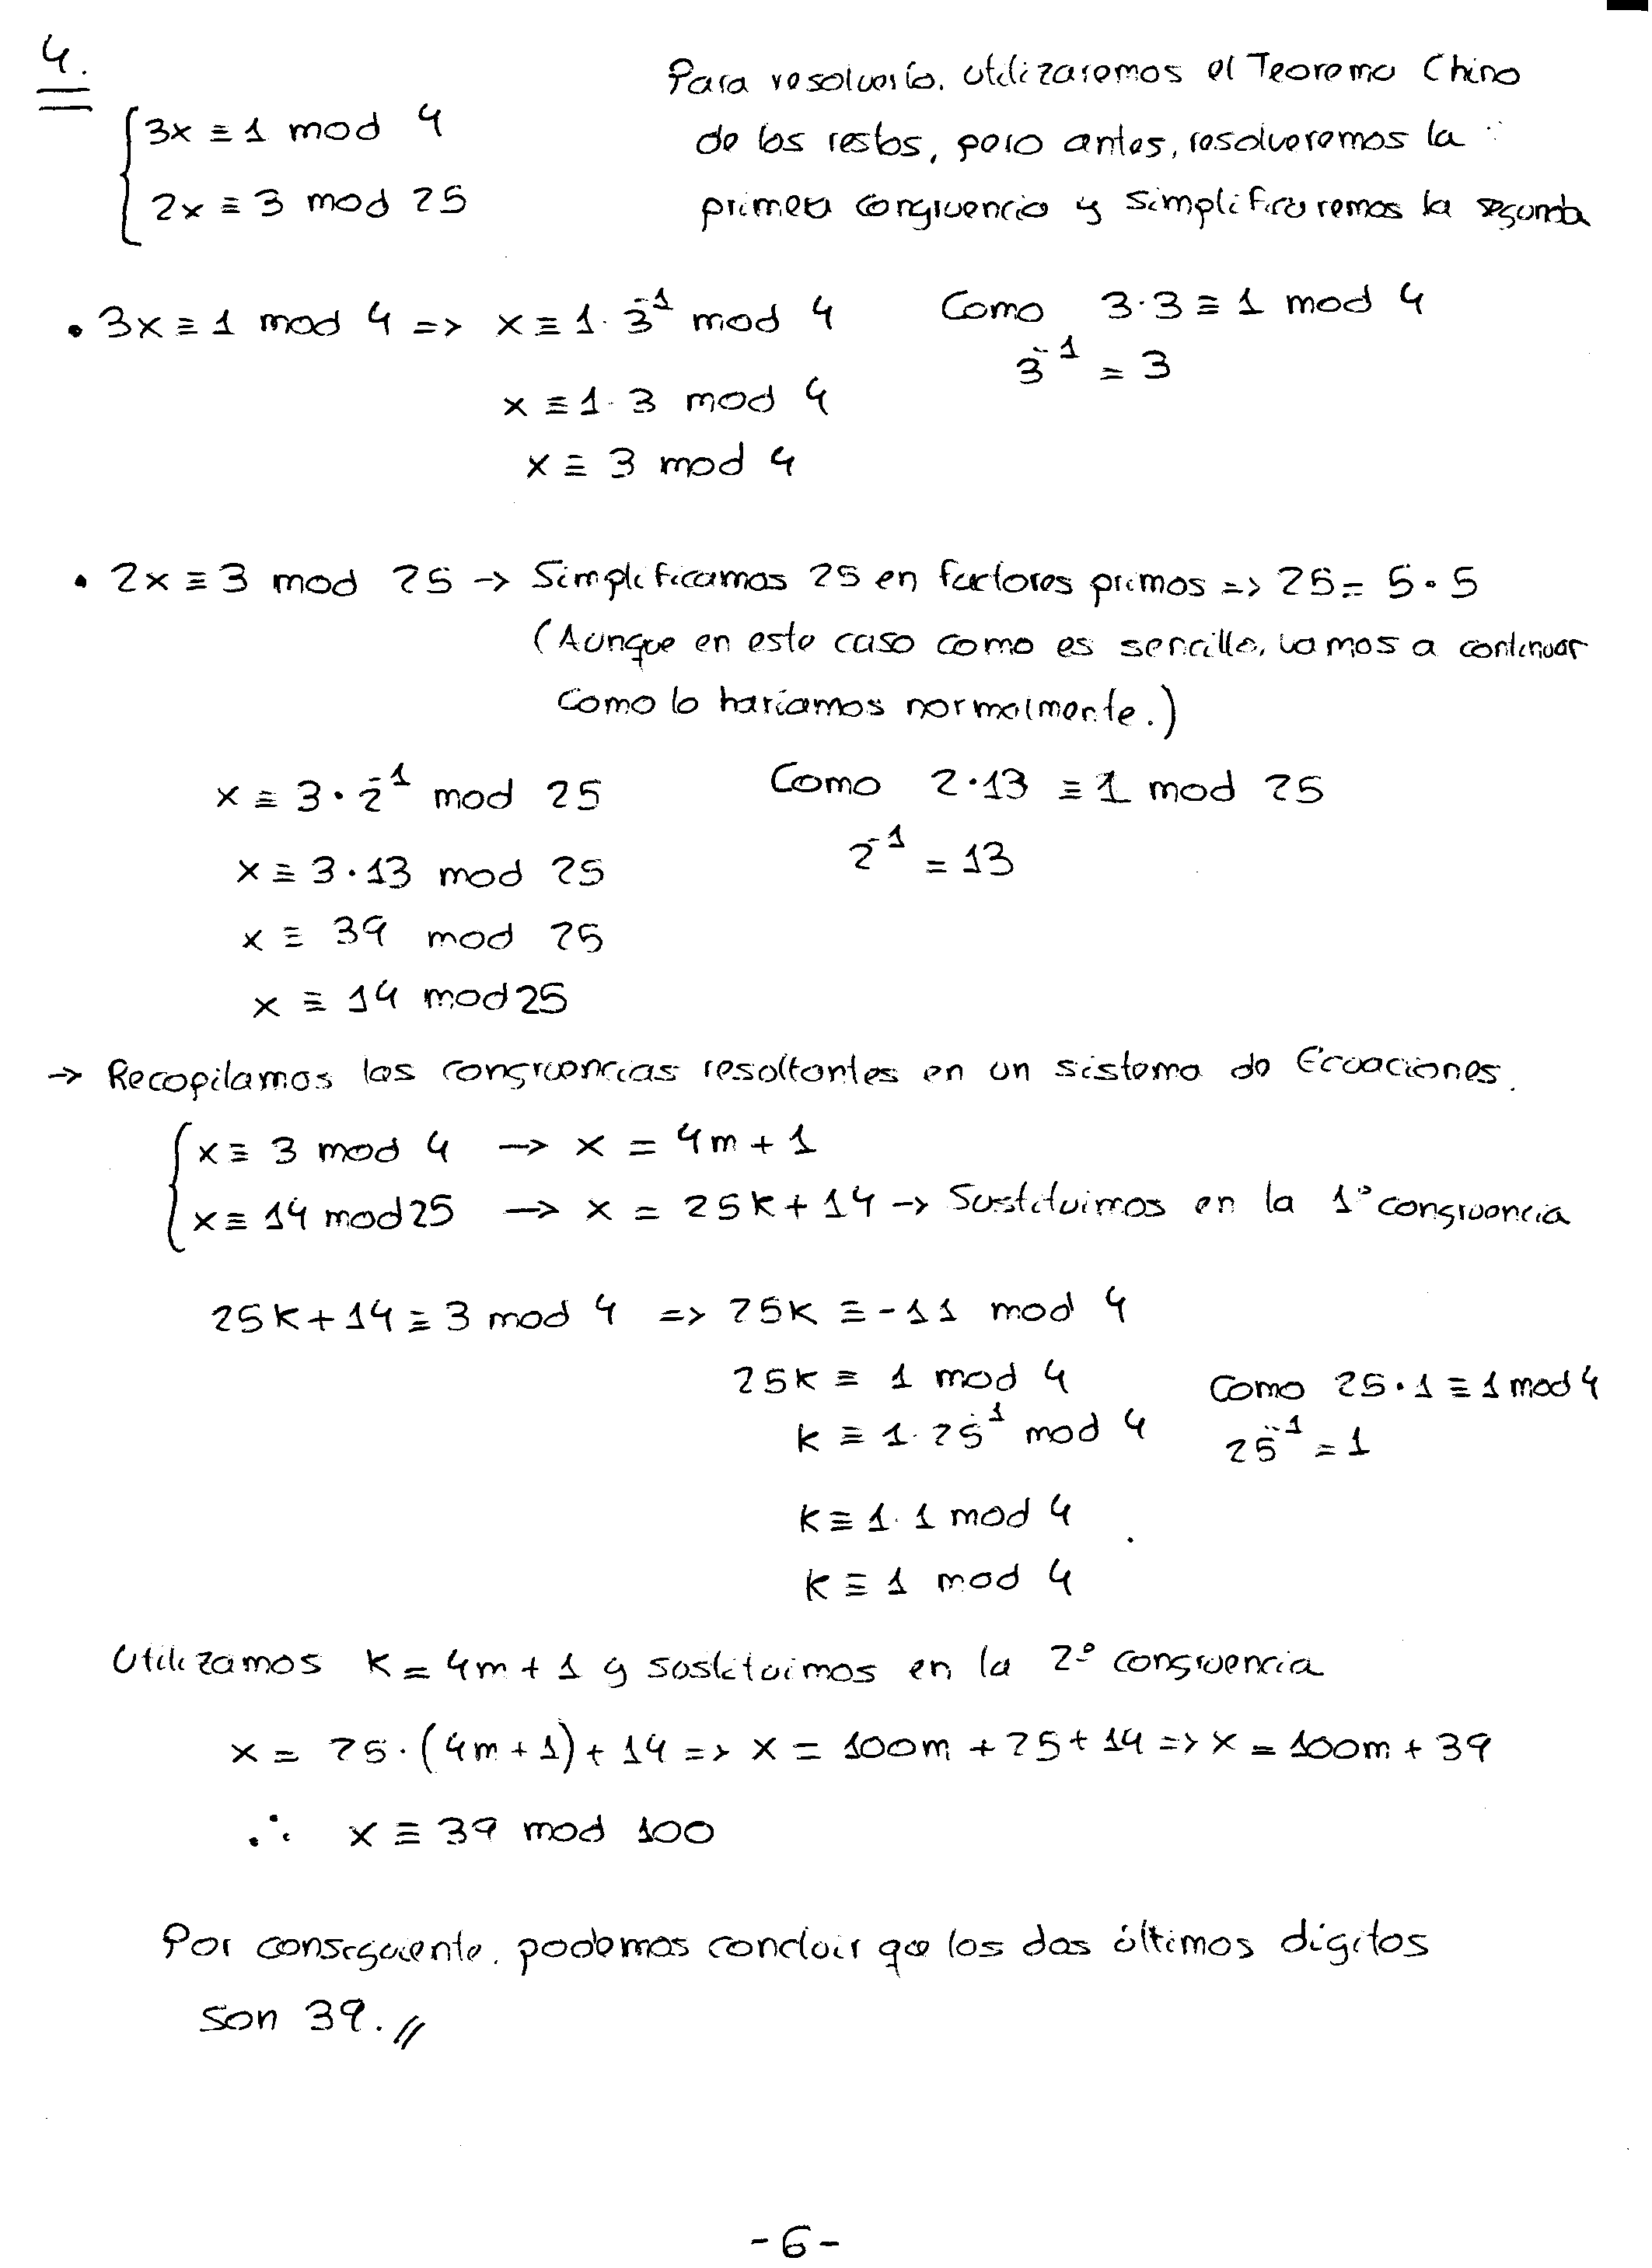 4.
Para resolverlo, utilizaremos el Teorema Chino
{ 3x ≡ 1 mod 4
de los restos, pero antes, resolveremos la
2x ≡ 3 mod 25
primera congruencia y simplificaremos la segunda
• 3x ≡ 1 mod 4 => x ≡ 1 · 3⁻¹ mod 4 Como 3·3 ≡ 1 mod 4
3⁻¹ = 3
x ≡ 1 · 3 mod 4
x ≡ 3 mod 4
• 2x ≡ 3 mod 25 → Simplificamos 25 en factores primos => 25 = 5 · 5
(Aunque en este caso como es sencillo, vamos a continuar
como lo haríamos normalmente.)
x ≡ 3 · 2⁻¹ mod 25 Como 2·13 ≡ 1 mod 25
2⁻¹ = 13
x ≡ 3 · 13 mod 25
x ≡ 39 mod 25
x ≡ 14 mod 25
→ Recopilamos las congruencias resultantes en un sistema de Ecuaciones.
{ x ≡ 3 mod 4 → x = 4m + 1
x ≡ 14 mod 25 → x = 25k + 14 → Sustituimos en la 1º congruencia
25k + 14 ≡ 3 mod 4 => 25k ≡ -11 mod 4
25k ≡ 1 mod 4 Como 25 · 1 ≡ 1 mod 4
k ≡ 1 · 25⁻¹ mod 4 25⁻¹ = 1
k ≡ 1 · 1 mod 4
k ≡ 1 mod 4
Utilizamos k = 4m + 1 y sustituimos en la 2º congruencia
x = 25 · (4m + 1) + 14 => x = 100m + 25 + 14 => x = 100m + 39
∴ x ≡ 39 mod 100
Por consiguiente, podemos concluir que los dos últimos dígitos
son 39. //
- 6 -